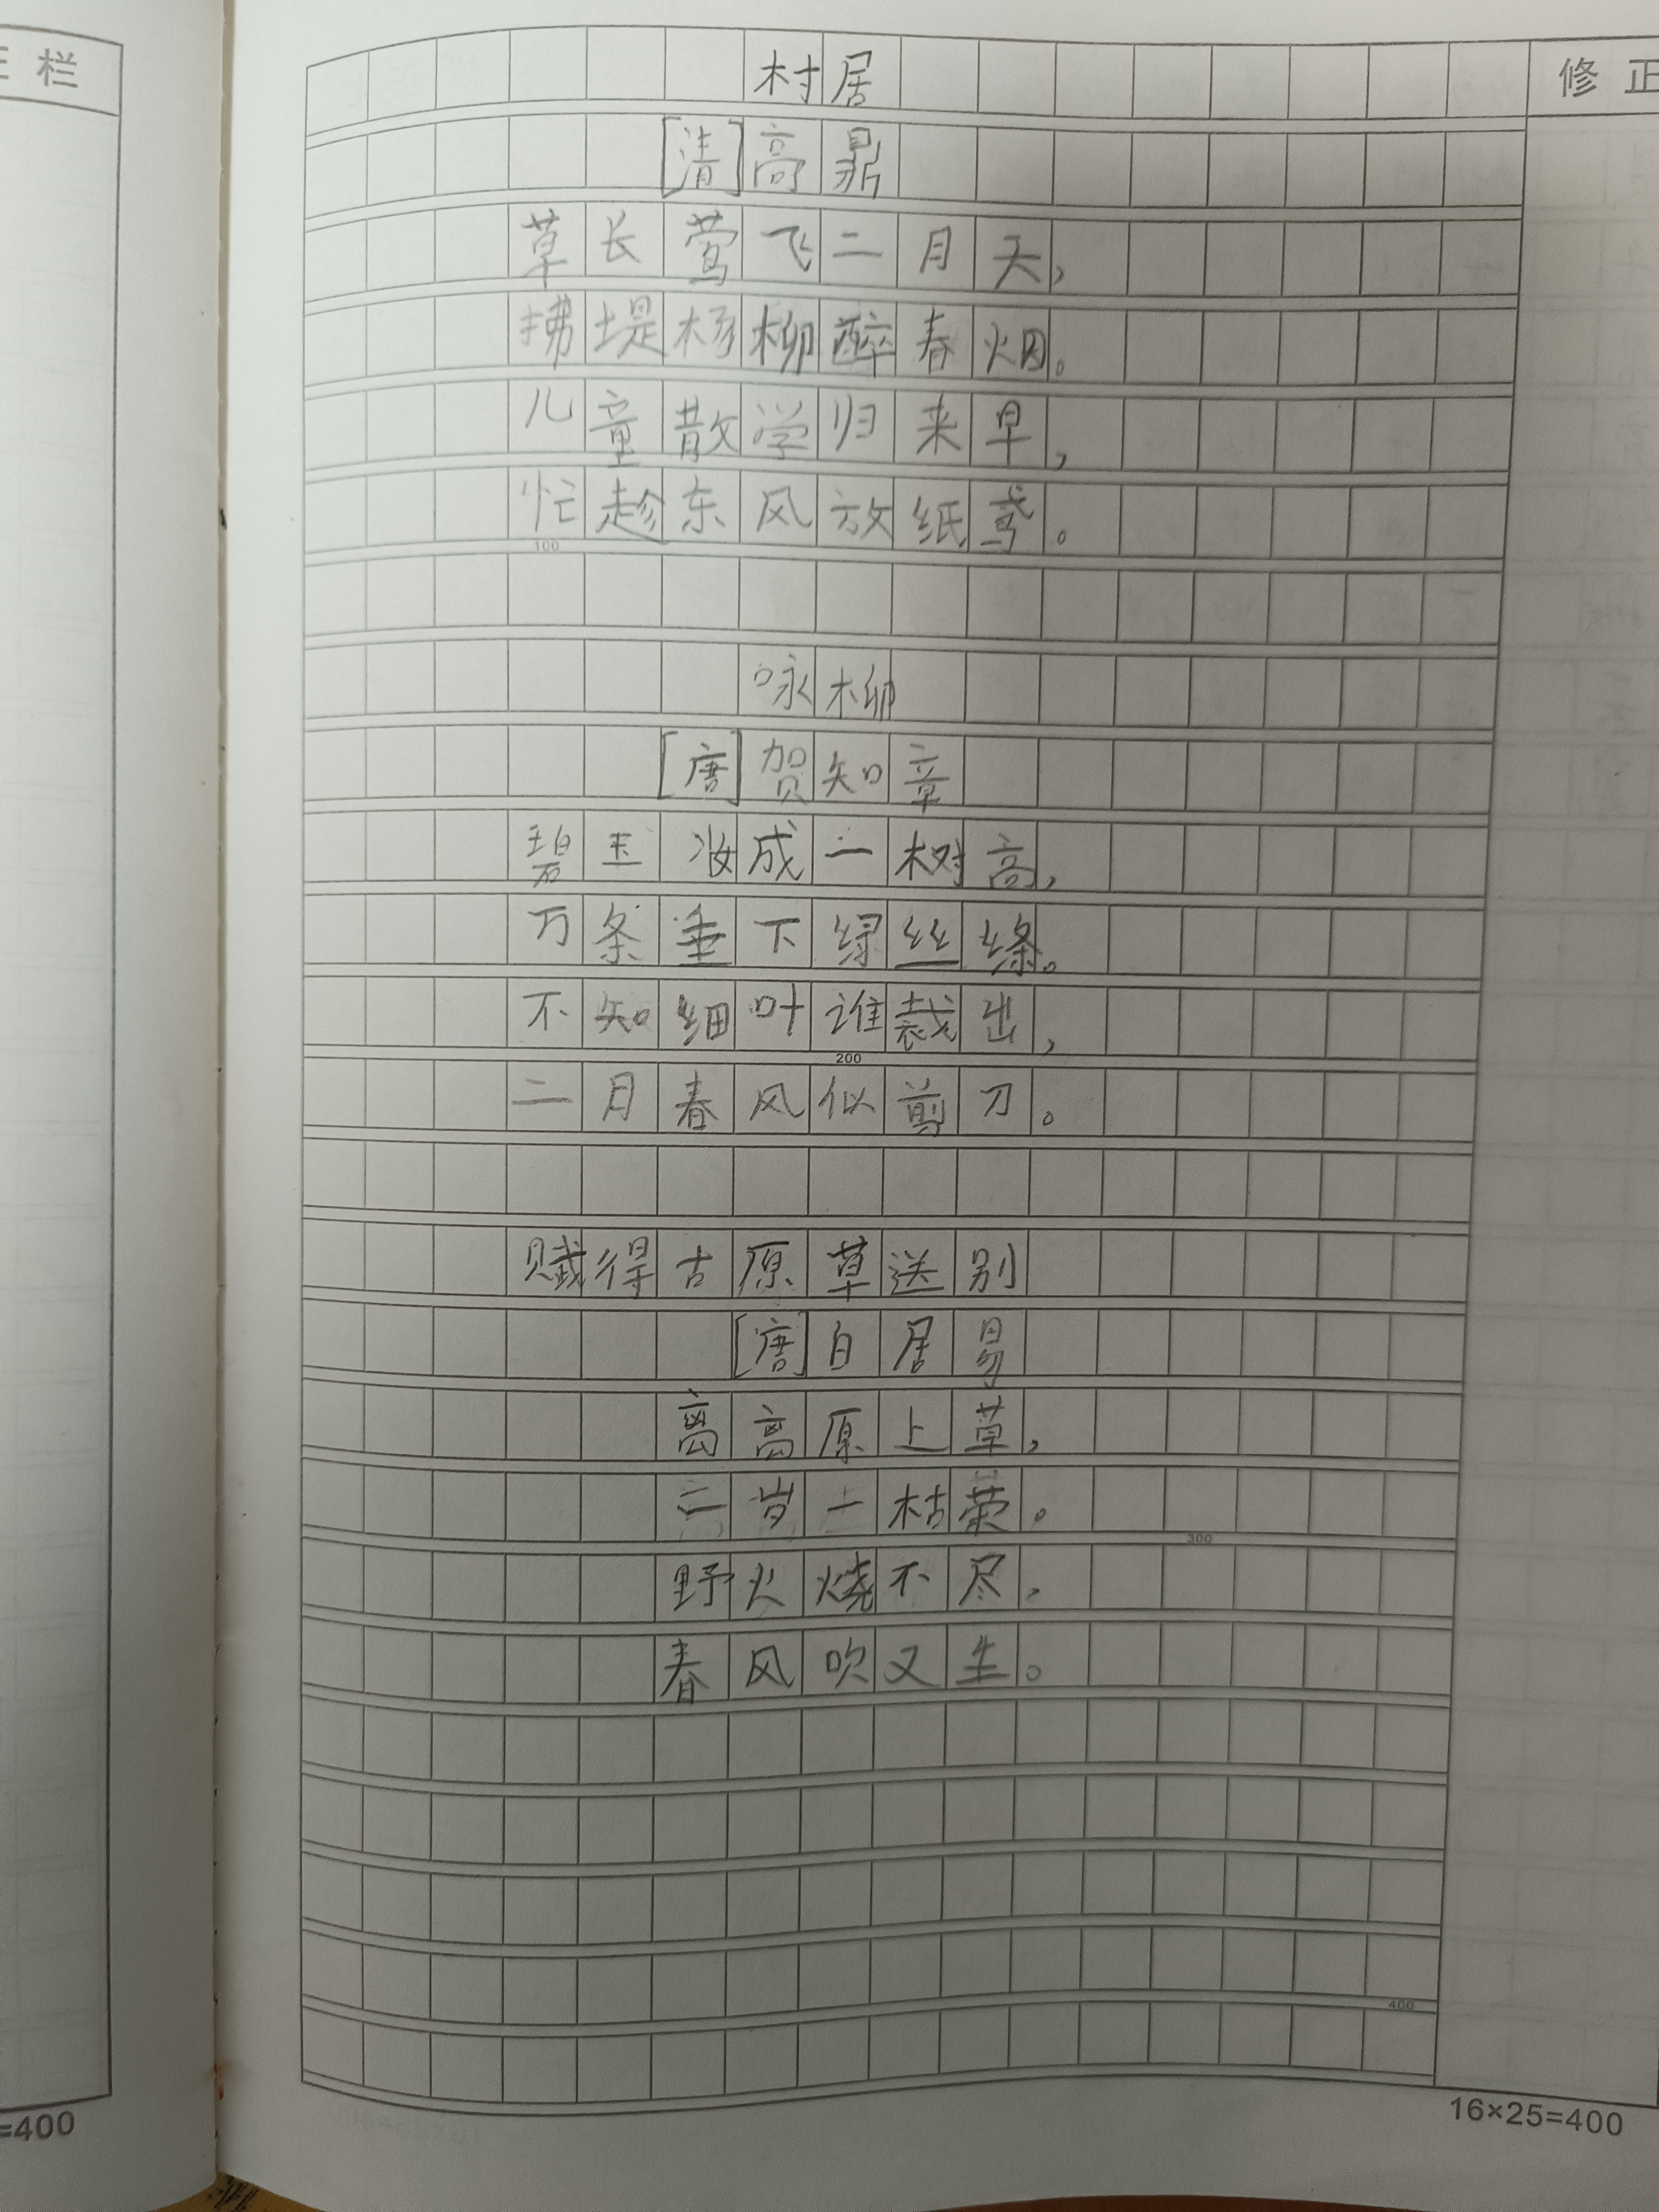 正栏
修正
村居
[清]高鼎
草长莺飞二月天，
拂堤杨柳醉春烟。
儿童散学归来早，
忙趁东风放纸鸢。
100
咏柳
[唐]贺知章
碧玉妆成一树高，
万条垂下绿丝绦。
不知细叶谁裁出，
200
二月春风似剪刀。
赋得古原草送别
[唐]白居易
离离原上草，
一岁一枯荣。
300
野火烧不尽，
春风吹又生。
400
16×25=400
=400